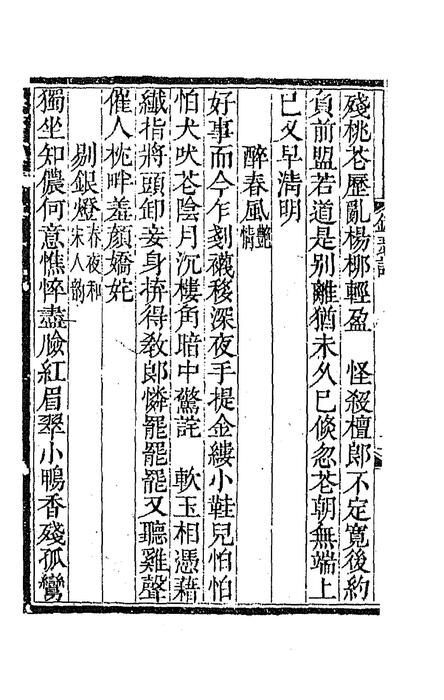 殘桃花歷亂楊柳輕盈　怪殺檀郎不定寬後約
負前盟若道是別離猶未久已倐忽花朝無端上
巳又早淸明
醉春風 艷情
好事而今乍刻襪移深夜手提金縷小鞋兒怕怕
怕犬吠花陰月沉樓角暗中驚詫　軟玉相憑藉
纖指將頭卸妾身拚得敎郎憐罷罷罷又聽雞聲
催人枕畔羞顏嬌姹
剔銀燈 春夜和宋人韵
獨坐知儂何意憔悴盡臉紅眉翠小鴨香殘孤鸞